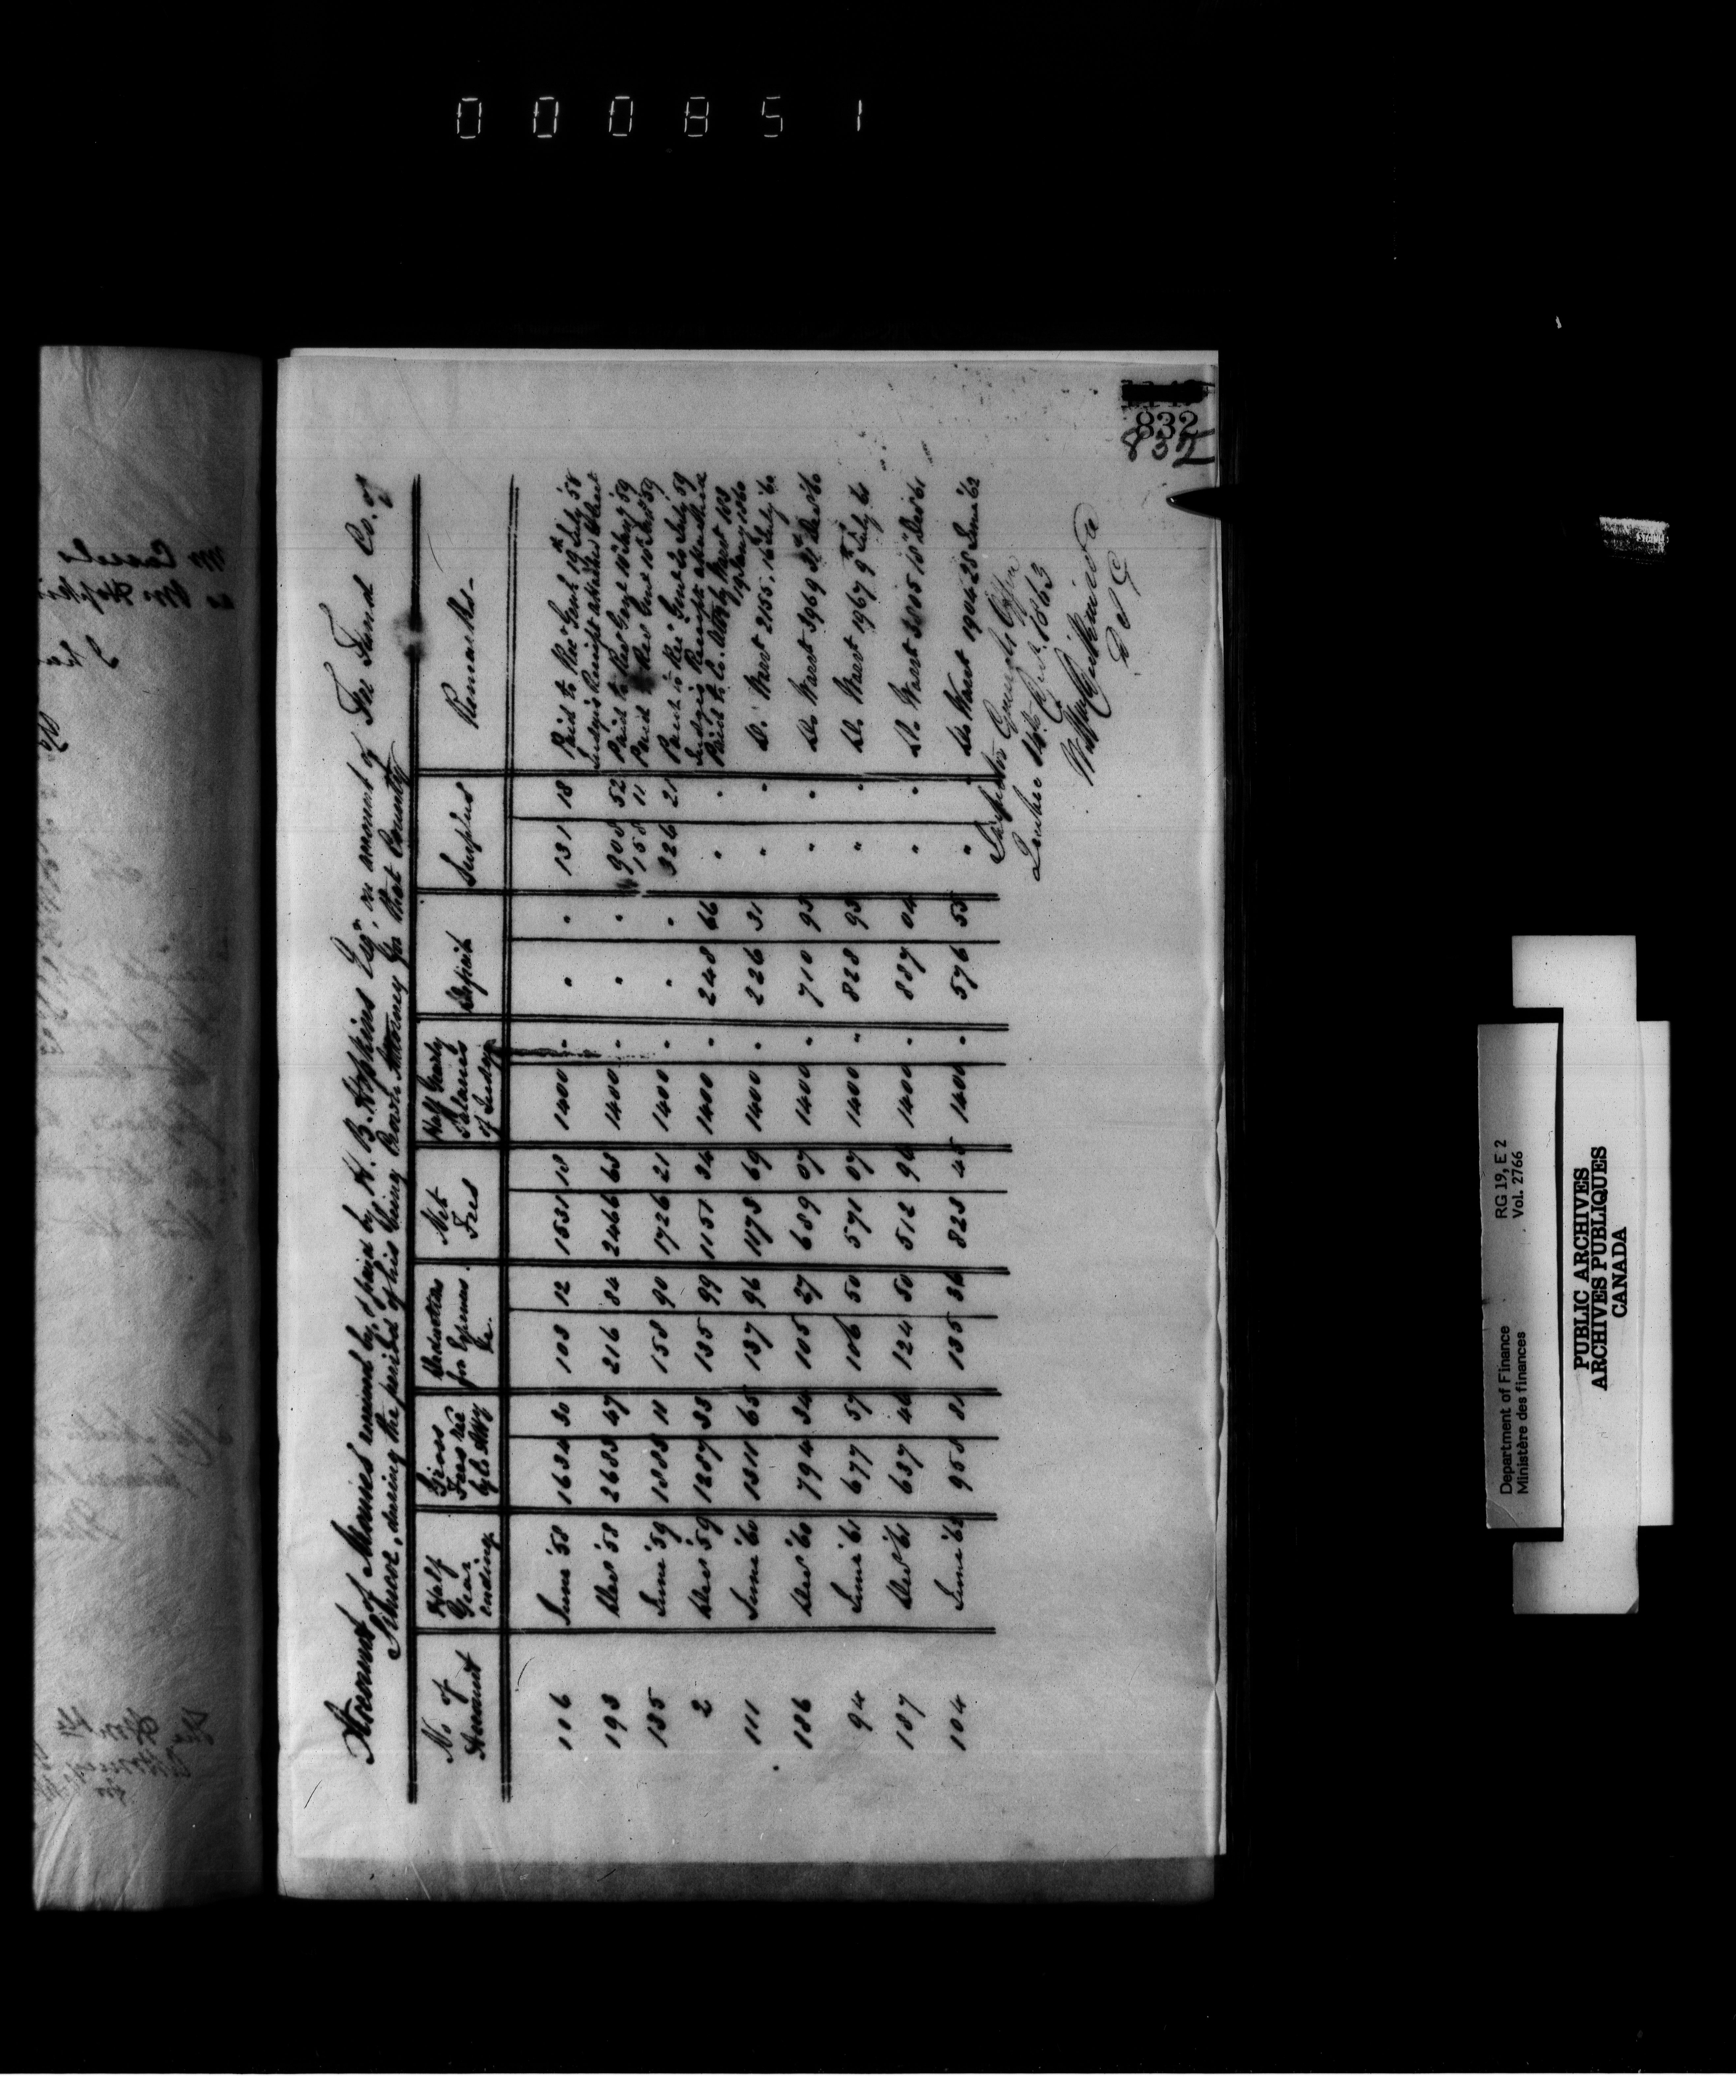 000851
832
832
Statement of Monies received by, & paid by H. B. Hopkins Esqr, on account of Fee Fund Co. of
Simcoe, during the period of his being Crown Attorney for that County
No of Account | Half Year ending | Gross Fees rec by Co. Atty | Deduction for Expenses &c. | Net Fees | Half Yearly Salaries of Judge | Deficit | Surplus | Remarks
106 | June '58 | 1634 30 | 103 12 | 1531 18 | 1400 - | " " | 131 18 | Paid to Rec Genl 19th July '58 Judge's Receipt attached
193 | Dec '58 | 2683 47 | 216 84 | 2466 63 | 1400 - | " " | 908 52 | Paid to Rec Genl
158 11 | Paid to Rec Genl
135 | June '59 | 1885 11 | 158 90 | 1726 21 | 1400 - | " " | 326 21 | Paid to Rec Genl 20 July '59 Judge's Receipt attached
2 | Dec '59 | 1287 33 | 135 99 | 1151 34 | 1400 | 248 66 | " | Paid to Co. Atty by Warrt 103 19 Jany 1860
111 | June '60 | 1311 65 | 137 96 | 1173 69 | 1400 - | 226 31 | " " | Do. Warrt 2155, 16 July '60
186 | Dec '60 | 794 34 | 105 27 | 689 07 | 1400 " | 710 93 | " " | Do Warrt 3969 31 Dec '60
94 | June '61 | 677 57 | 106 50 | 571 07 | 1400 " | 828 93 | " " | Do. Warrt 1967 9 July 61
187 | Dec '61 | 637 46 | 124 50 | 512 96 | 1400 - | 887 04 | " " | Do. Warrt 3805 18 Dec '61
104 | June '62 | 958 81 | 135 36 | 823 45 | 1400 - | 576 55 | " " | Do Warrt 1904 28 June '62
Inspector General's Office
Quebec 1863
D I G
Department of Finance
Ministère des finances
RG 19, E 2
Vol. 2766
PUBLIC ARCHIVES
ARCHIVES PUBLIQUES
CANADA